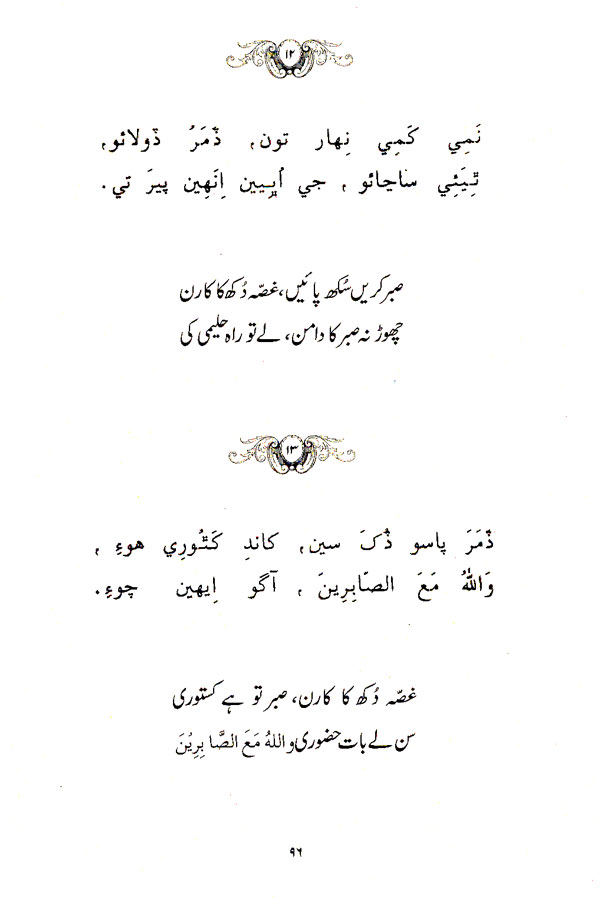 ۱۲
نَمِي کَمِي نِهار تون، ڏَمَرُ ڏولائو،
ٿِيَئِي ساڃائو، جي اُڀِيين اِنَهِين پيرَ تي.
صبر کریں سُکھ پائیں، غصّہ دُکھ کا کارن
چھوڑ نہ صبر کا دامن، لے تو راہ حلیمی کی
۱۳
ڏَمَرَ پاسو ڏُکَ سين، کاندِ کَٿُورِي هوءِ،
وَاللهُ مَعَ الصّابِرِينَ، آگو اِيهين چوءِ.
غصّہ دُکھ کا کارن، صبر تو ہے کستوری
سن لے بات حضوری واللهُ مَعَ الصَّابِرِیْنَ
۹۶